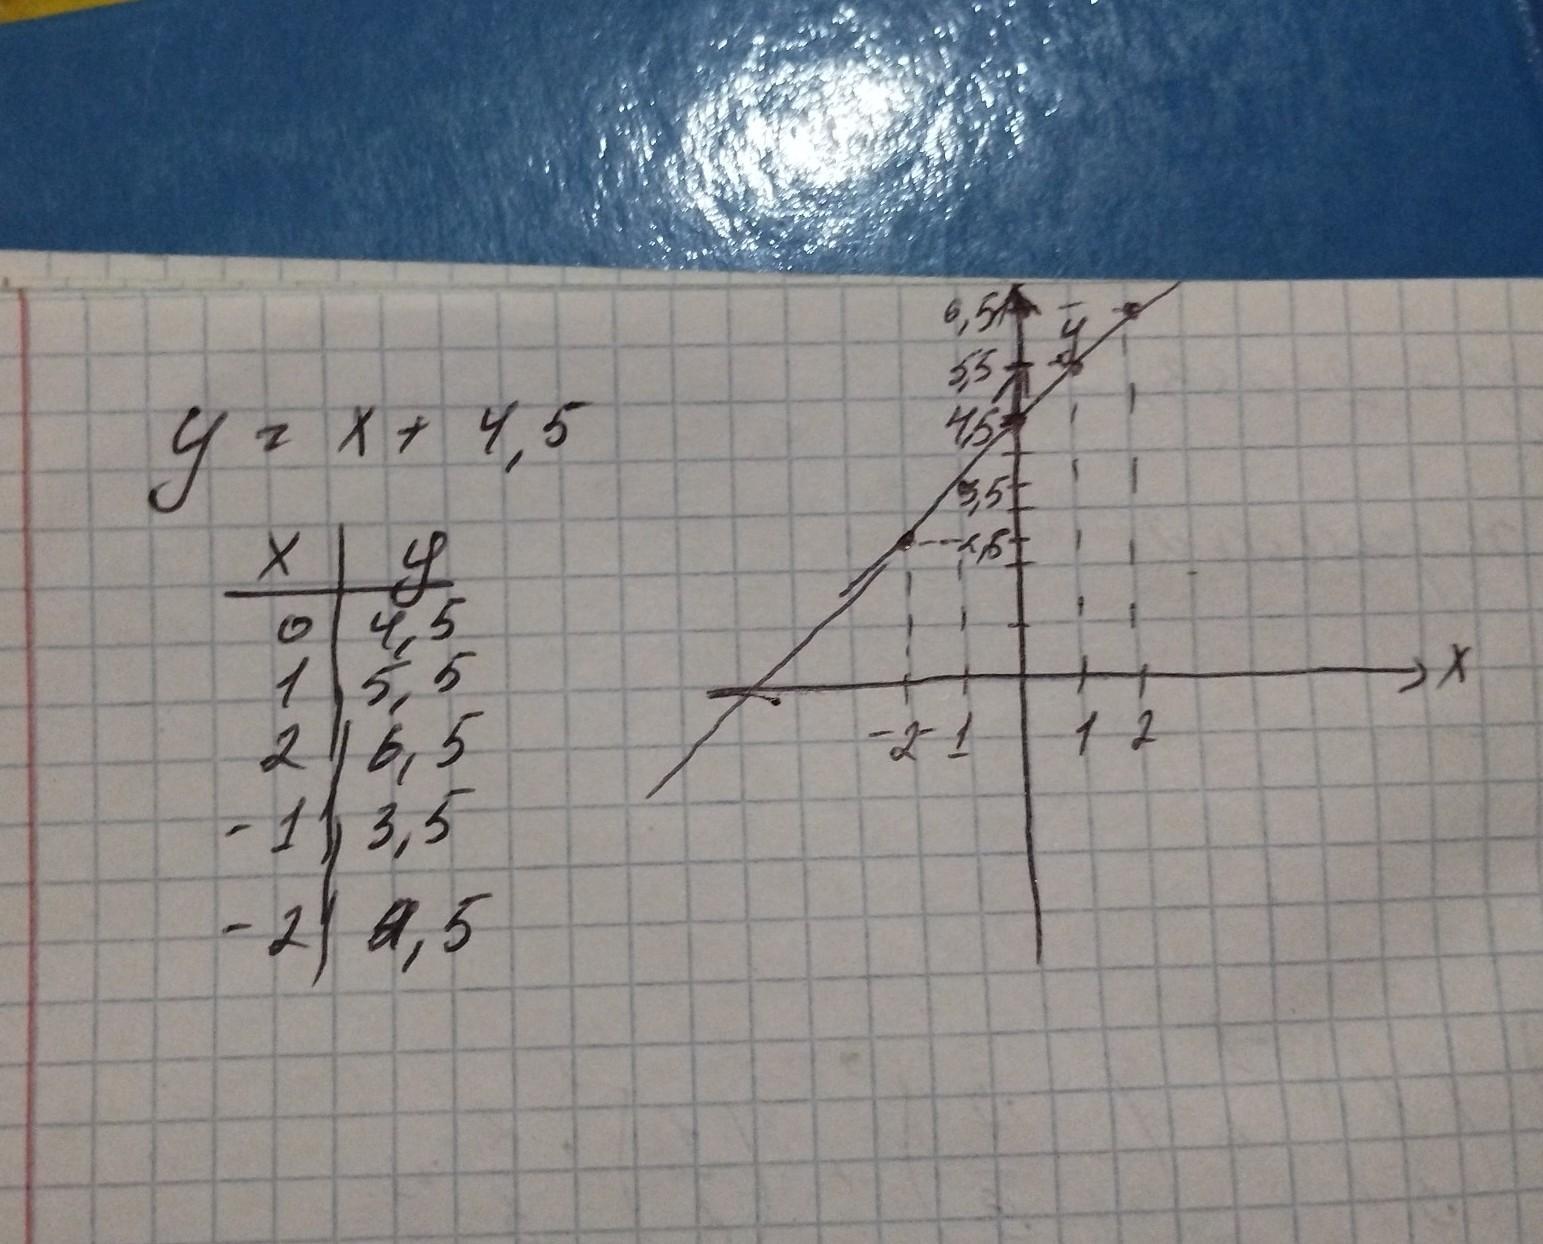 y = x + 4,5
x | y
0 | 4,5
1 | 5,5
2 | 6,5
-1 | 3,5
-2 | ,5
6,5
y
5,5
4,5
3,5
,5
x
-2 -1 1 2